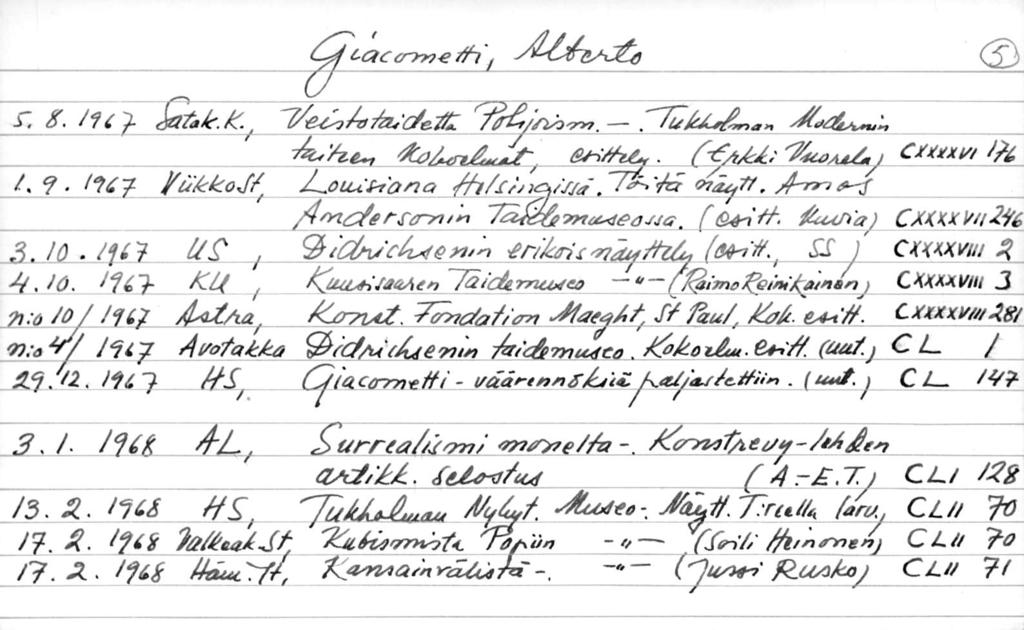 Giacometti, Alberto 5
5. 8. 1967 Satak.K., Veistotaidetta Pohjoism. -. Tukholman Modernin
taiteen kokoelmat, esittely. (Erkki Vuorela) CXXXXVI 176
1. 9. 1967 ViikkoSt, Louisiana Helsingissä. Töitä näytt. Amos
Andersonin Taidemuseossa. (esitt. kuvia) CXXXXVII 246
3. 10. 1967 US, Didrichsenin erikoisnäyttely (esitt., SS) CXXXXVIII 2
4. 10. 1967 KU, Kuusisaaren Taidemuseo -"- (Raimo Reinikainen) CXXXXVIII 3
n:o 10/1967 Astra, Konst. Fondation Maeght, St Paul, Kok. esitt. CXXXXVIII 281
n:o 4/1967 Avotakka Didrichsenin taidemuseo. Kokoelm. esitt. (uut.) CL 1
29. 12. 1967 HS, Giacometti-väärennöksiä paljastettiin. (uut.) CL 147
3. 1. 1968 AL, Surrealismi monelta -. Konstrevy-lehden
artikk. selostus (A.-E.T.) CLI 128
13. 2. 1968 HS, Tukholman Nykyt. Museo-. Näytt. T:reella (arv.) CLII 70
17. 2. 1968 Valkeak.St, Kubismista Popiin -"- (Soili Heinonen) CLII 70
17. 2. 1968 Häm. St, Kansainvälistä -. -"- (Jussi Rusko) CLII 71